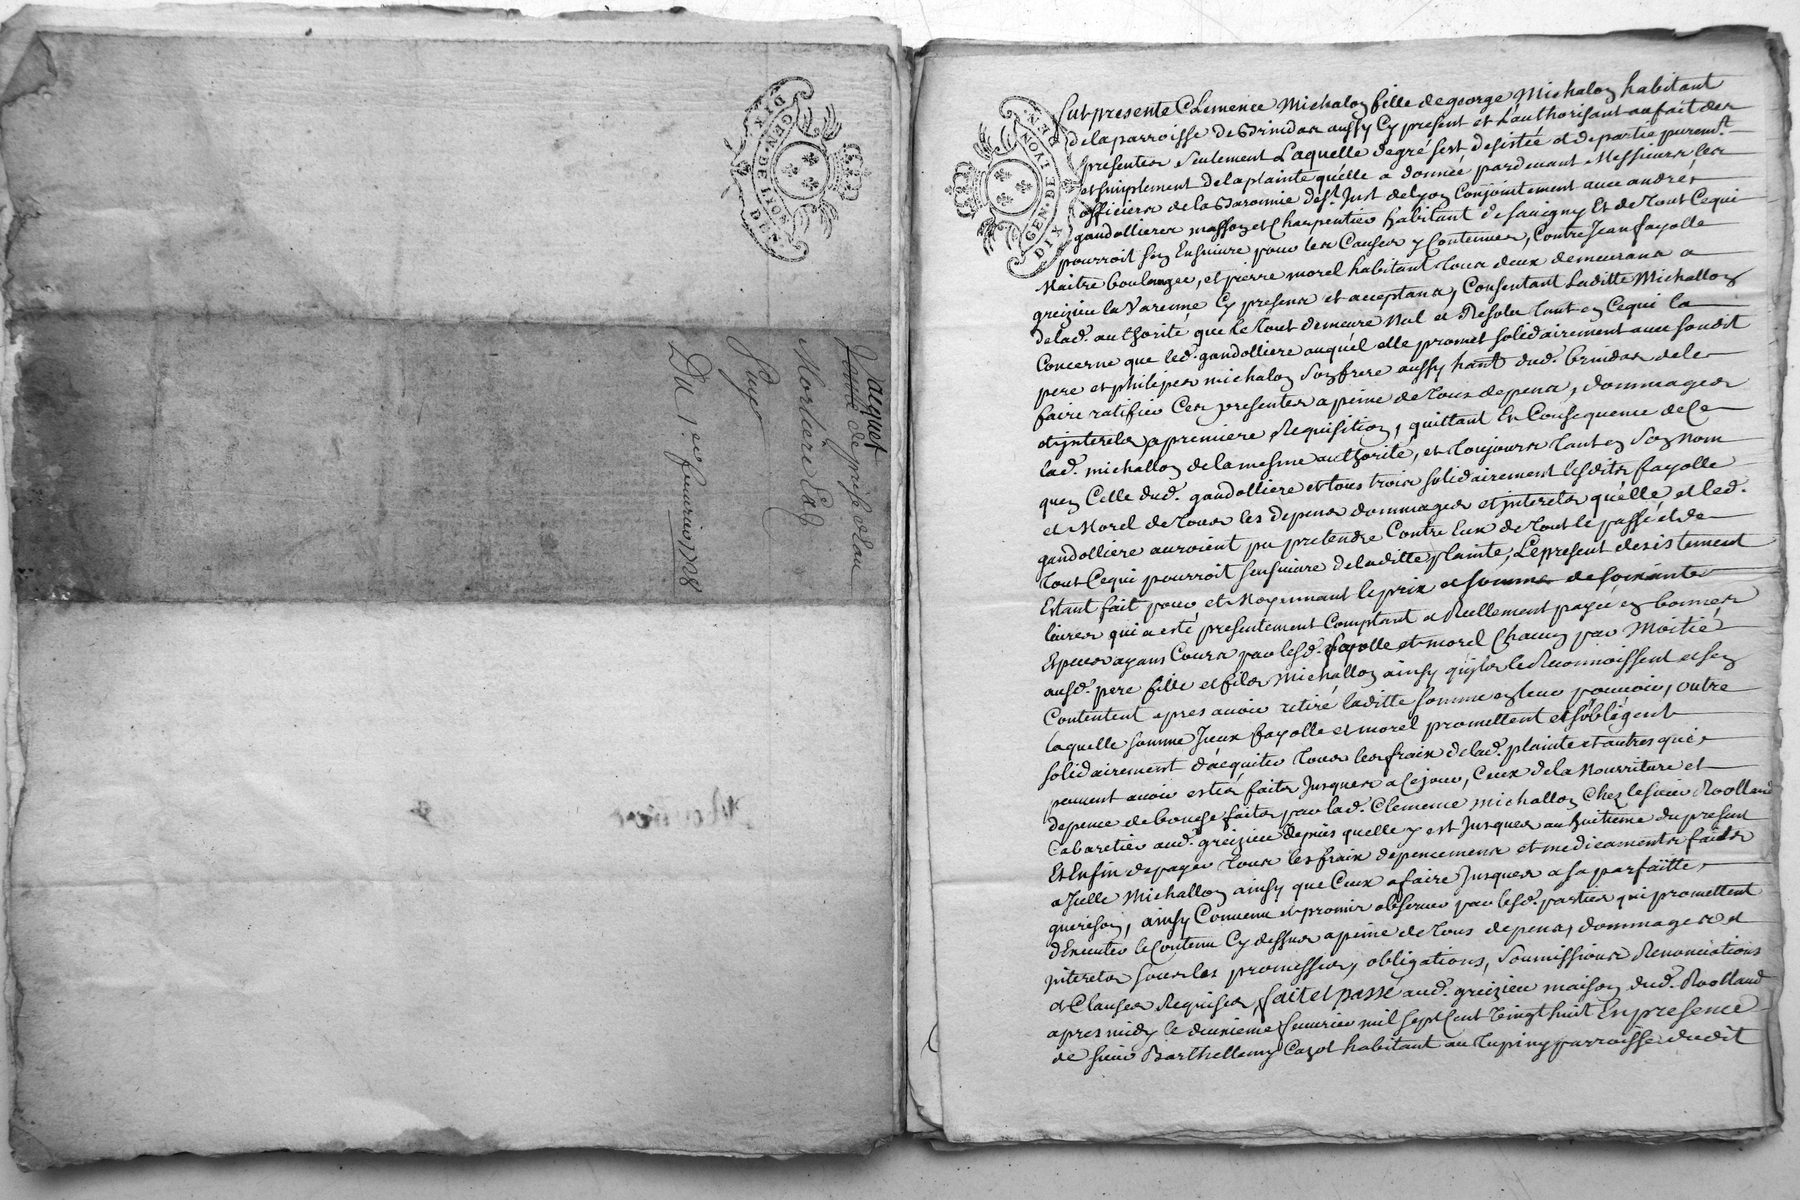 GEN. DE LYON
DIX DEN.
Jacquet
de prise de lau
Mortier Lad
Puys
Du 1er feurier 1728
GEN. DE LYON
DIX DEN.
Fut presente Clemence Michalon fille de george Michalon habitant
de la parroisse de Brindas aussy Cy present et Lauthorisant au fait des
presentes seulement Laquelle degré sest desistée et departie purem.t
et simplement de la plainte quelle a donnée pardeuant Messieurs les
officiers de la Baronnie de S.t Just de Lyon Conjointement auec andre
gandolliere masson et Charpentier habitant de sauigny Et de tout Cequi
pourroit sen Ensuiure pour les Causes y Contenues, Contre Jean fayolle
Maitre boulanger, et pierre morel habitant tous deux demeurans a
greizieu la Varenne Cy presens et acceptans, Consentant Laditte Michallon
de lad. authorité que le tout demeure Nul et Resolu tant en Cequi la
Concerne que led. gandolliere auquel elle promet solidairement auec sondit
pere et philipes michalon son frere aussy hant dud. brindas de le
faire ratifier Ces presentes a peine de tous depens, dommages
et jnterets, a premiere Requisition, quittant En Consequence de Ce
lad. michallon de la mesme authorité, et toujours tant en son Nom
quen Celle dud. gandolliere et tous trois solidairement lesdits fayolle
et Morel de tous les depens dommages et jnterets quelle et led.
gandolliere auroient pu pretendre Contre Eux de tout le passé et de
tout Cequi pourroit sensuiure de laditte plainte, Le present desistement
Estant fait pour et Moyennant le prix et somme de soixante
liures qui a esté presentement Comptant et Reellement payée en bonnes
Especes ayans Cours par lesd. fayolle et morel Chacun par Moitié
ausd. pere fille et fils Michallon ainsy quils le Reconnoissent et sen
Contentent apres auoir retiré laditte somme en leur pouuoir, outre
laquelle somme Jceux fayolle et morel promettent et soblegent
solidairement dacquiter tous les fraix de lad. plainte et autres qui
peuuent auoir estés faits Jusques a Ce jour, Ceux de la Nourriture et
depence de bouche faites par lad. Clemence michallon Chez le sieur Rolland
Cabaretier aud. greizieu depuis quelle y est Jusques au huitieme du present
Et Enfin de payer tous les fraix de pencemens et medicaments faits
a Jcelle Michallon ainsy que Ceux a faire Jusques a sa parfaitte
guerison, ainsy Conuenu et promis obseruer par lesd. parties qui promettent
dExecuter le Contenu Cy dessus a peine de tous depens, dommages et
jnterets sous les promesses, obligations, soumissions Renonciations
et Clauses Requises, fait et passé aud. greizieu maison dud. Rolland
apres midy le deuxieme feurier mil sept Cent Vingt huit En presence
de sieur Barthellemy Cazot habitant au Tupin parroisse dudit